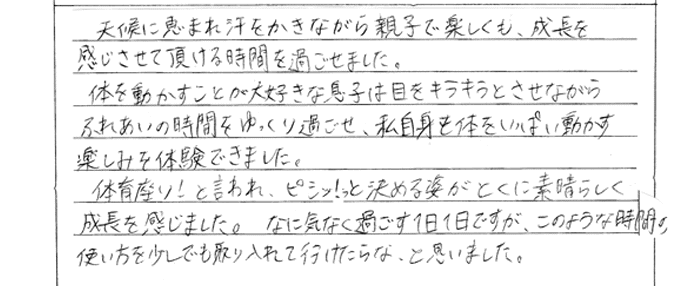 天候に恵まれ汗をかきながら親子で楽しくも、成長を
感じさせて頂ける時間を過ごせました。
体を動かすことが大好きな息子は目をキラキラとさせながら
ふれあいの時間をゆっくり過ごせ、私自身も体をいっぱい動かす
楽しみを体験できました。
体育座り!と言われ、ピシッ!っと決める姿がとくに素晴らしく
成長を感じました。 なに気なく過ごす1日1日ですが、このような時間の
使い方を少しでも取り入れて行けたらな、と思いました。